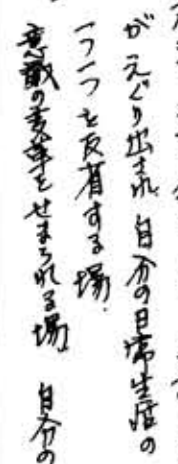 がえぐり出され、自分の日常生活の
一つ一つを反省する場.
意識の変革をせまられる場 自分の